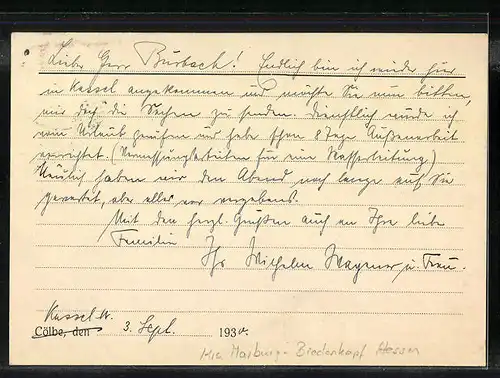 Lieber Herr Burbach! Endlich bin ich wieder hier
in Kassel angekommen und möchte Sie nun bitten,
mir doch die Sachen zu senden. Dienstlich wurde ich
vom Urlaub gerufen und habe schon 8 Tage Außenarbeit
verrichtet. (Vermessungsarbeiten für eine Wasserleitung.)
Neulich haben wir den Abend noch lange auf Sie
gewartet, aber alles war vergebens.
Mit den herzl. Grüßen auch an Ihre liebe
Familie
Ihr Wilhelm Wagener u. Frau.
Kassel W.
Cölbe, den 3. Sept. 1930.
Marburg-Biedenkopf Hessen